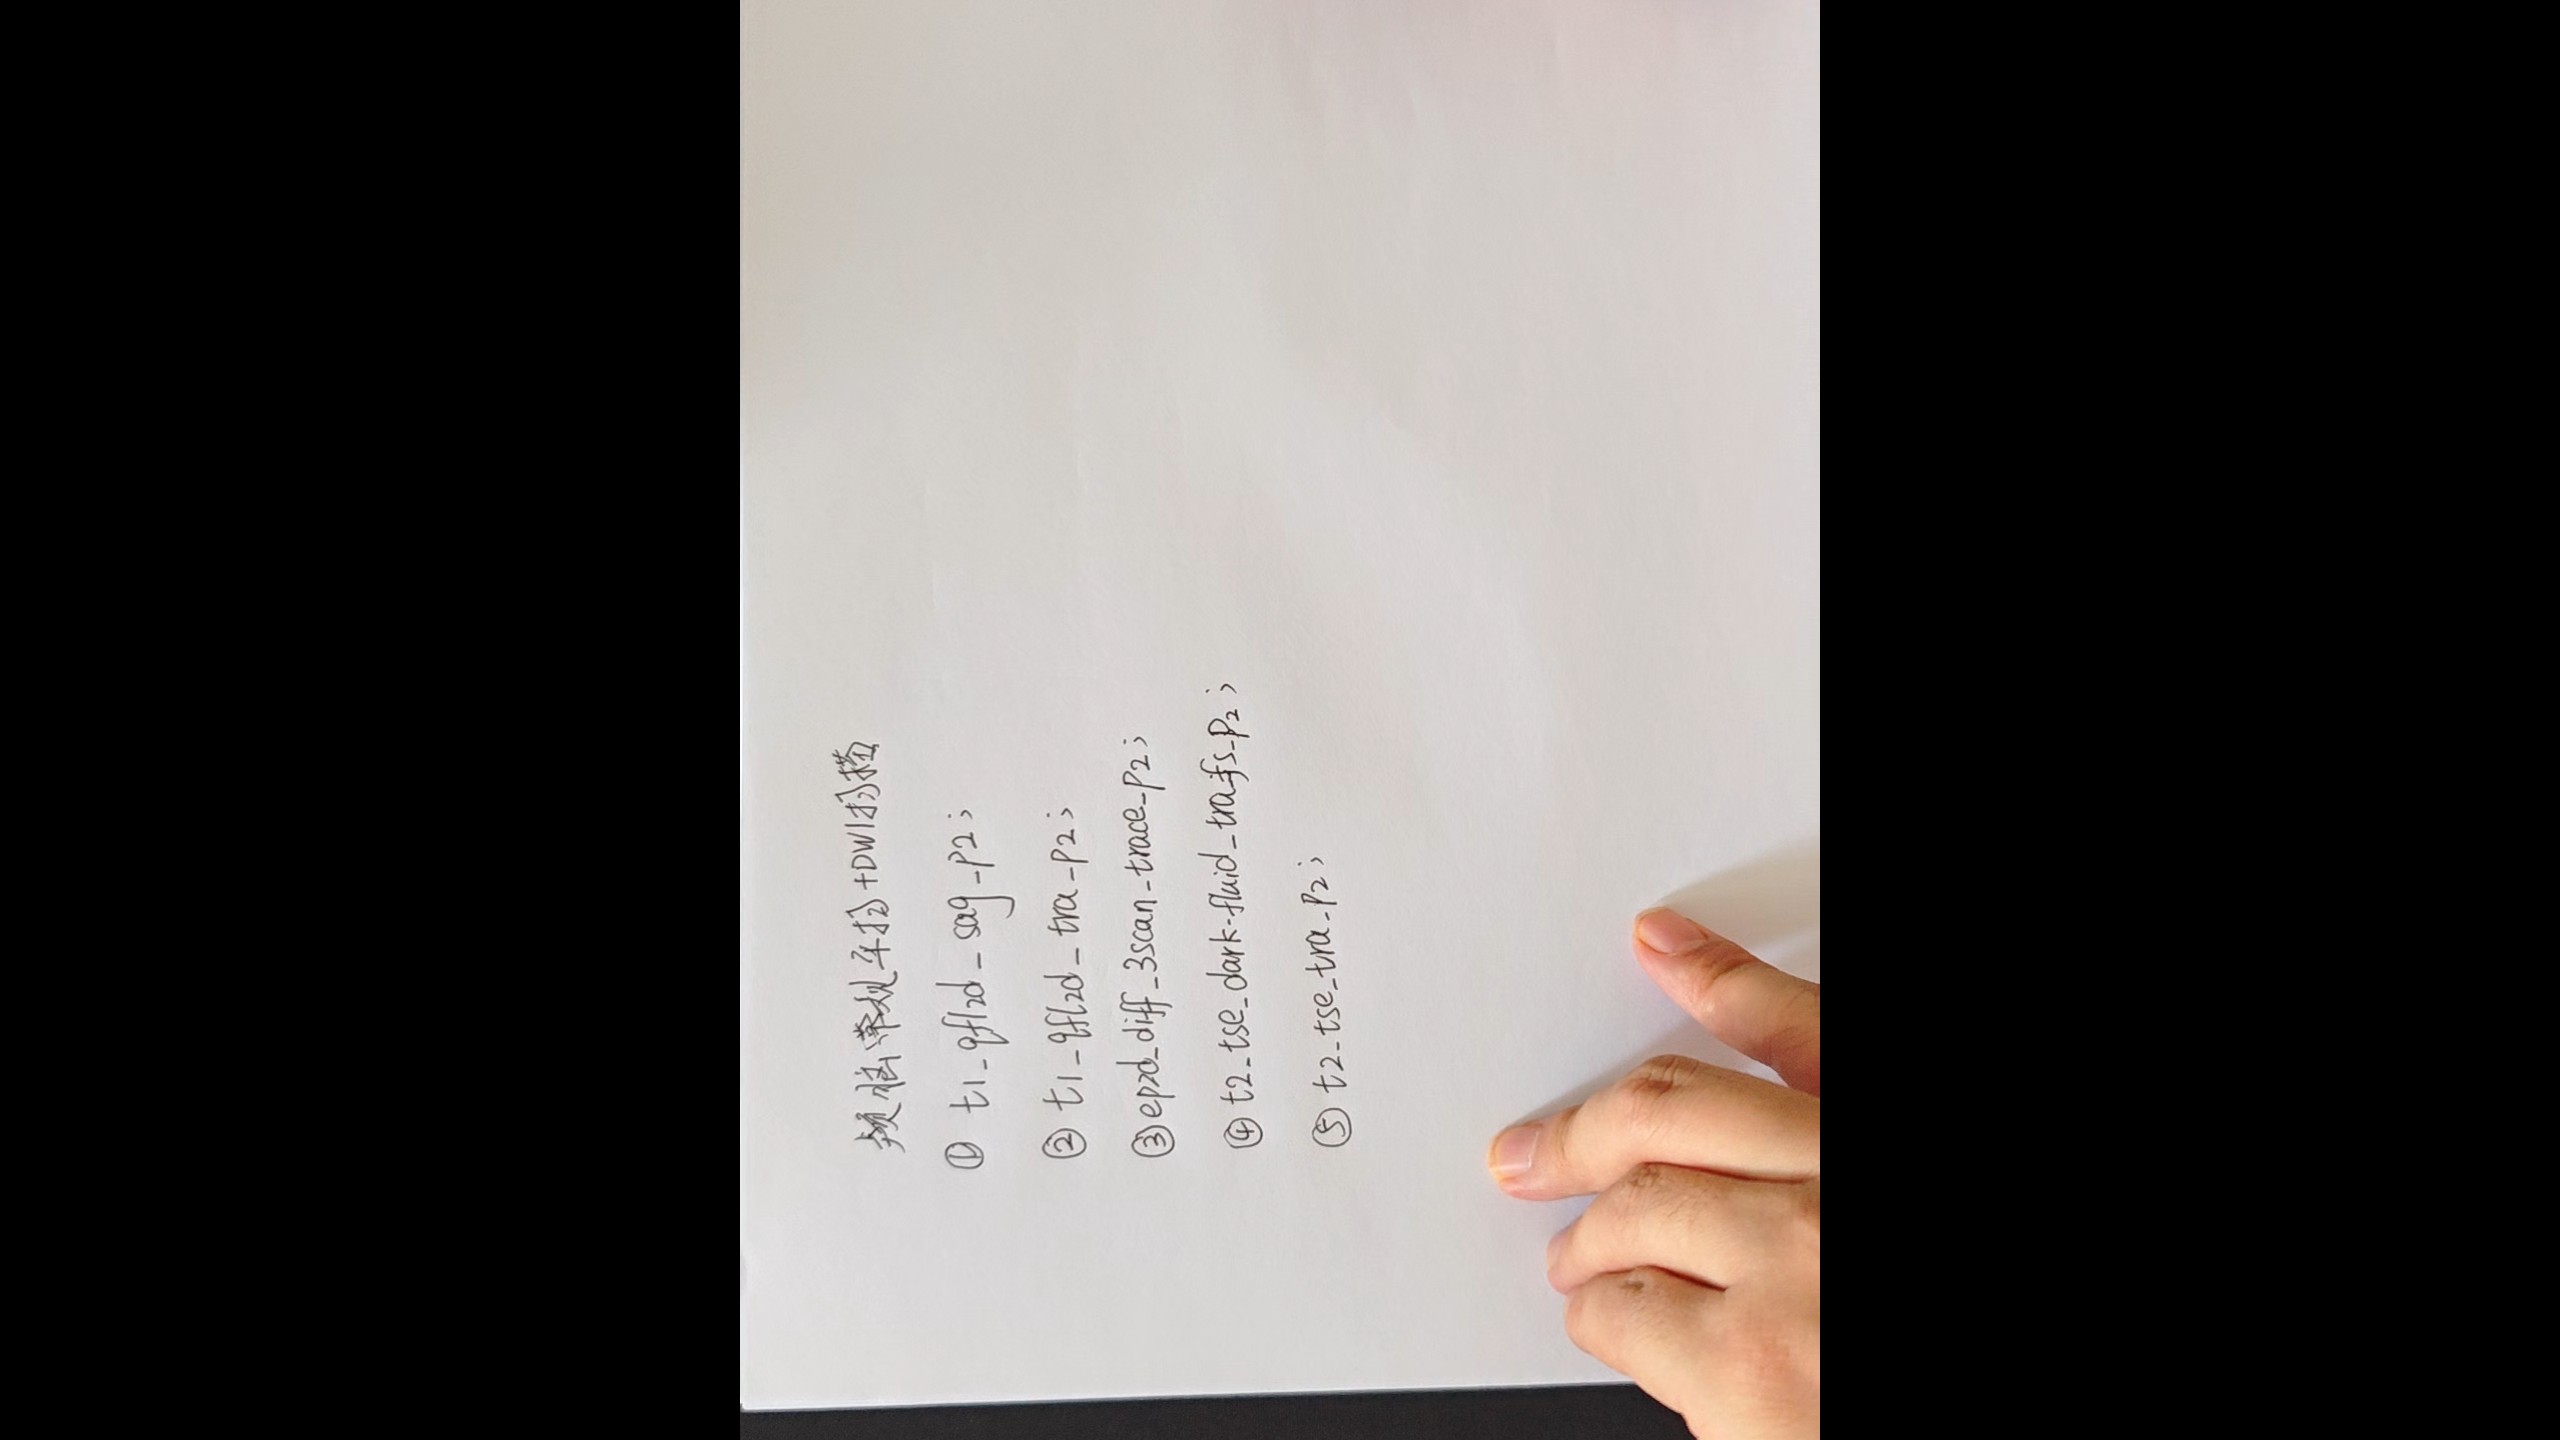 颅脑常规平扫+DWI扫描
① t1_gfl2d_sag_p2;
② t1_gfl2d_tra_p2;
③ ep2d_diff_3scan_trace_p2;
④ t2_tse_dark-fluid_tra_fs_p2;
⑤ t2_tse_tra_p2;